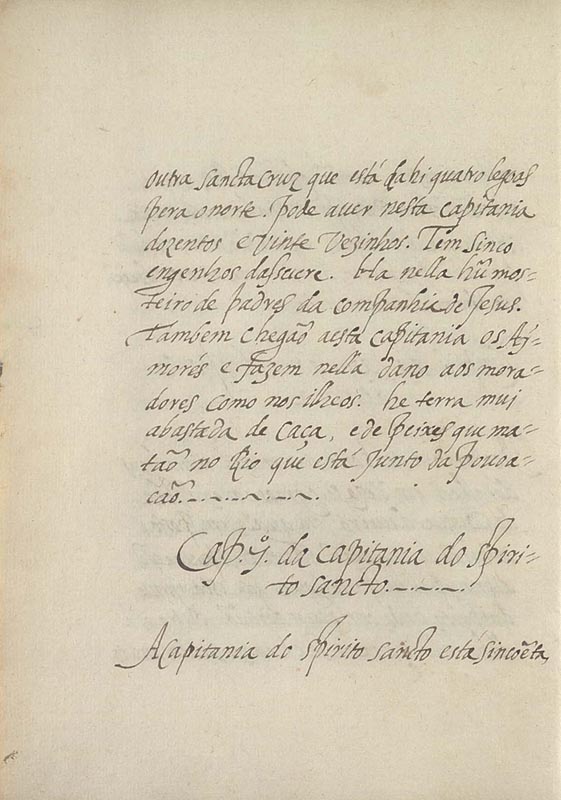 outra sancta cruz que está dahi quatro legoas
pera o norte. Pode aver nesta capitania
dozentos e vinte vezinhos. Tem sinco
engenhos dassucre. há nella hũ mos-
teiro de padres da companhia de Jesus.
Tambem chegaõ a esta capitania os Aỹ-
morés e fazem nella dano aos mora-
dores como nos ilheos. he terra mui
abastada de caça, e de peixes que ma-
taõ no Rio que está junto da povoa-
caõ.
Cap. 5. da capitania do Spiri-
to sancto.
A Capitania do Spirito sancto está sincoẽta